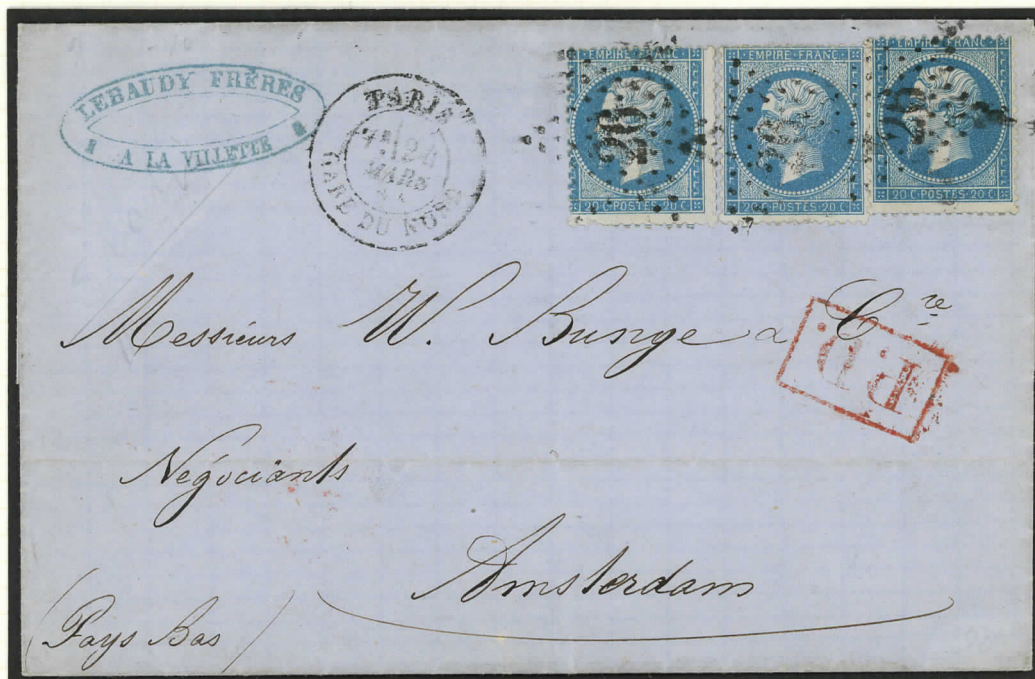 LEBAUDY FRÈRES
A LA VILLETTE
PARIS
4E 24
MARS
GARE DU NORD
EMPIRE FRANC
20 C POSTES 20 C
26
EMPIRE FRANC
20 C POSTES 20 C
26
EMPIRE FRANC
20 C POSTES 20 C
26
Messieurs W. Bunge & Cie
P.D.
Négociants
Amsterdam
(Pays Bas)